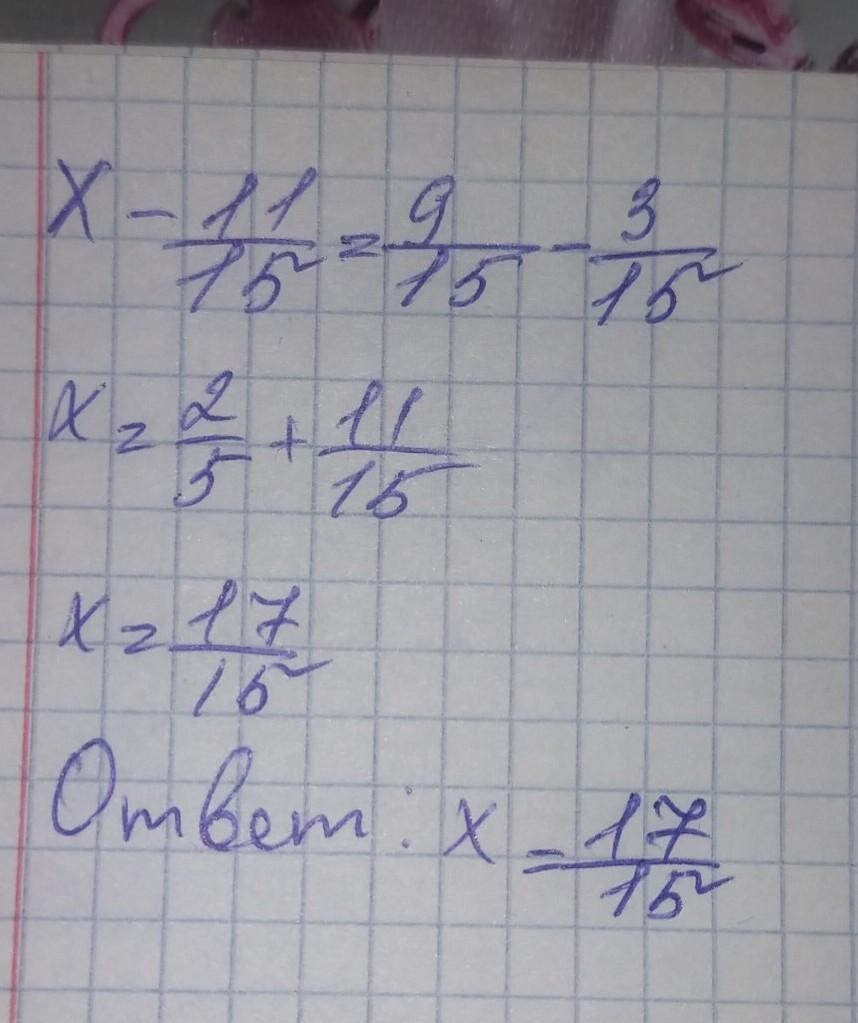 X - 11/15 = 9/15 - 3/15
x = 2/5 + 11/15
x = 17/15
Ответ: x = 17/15